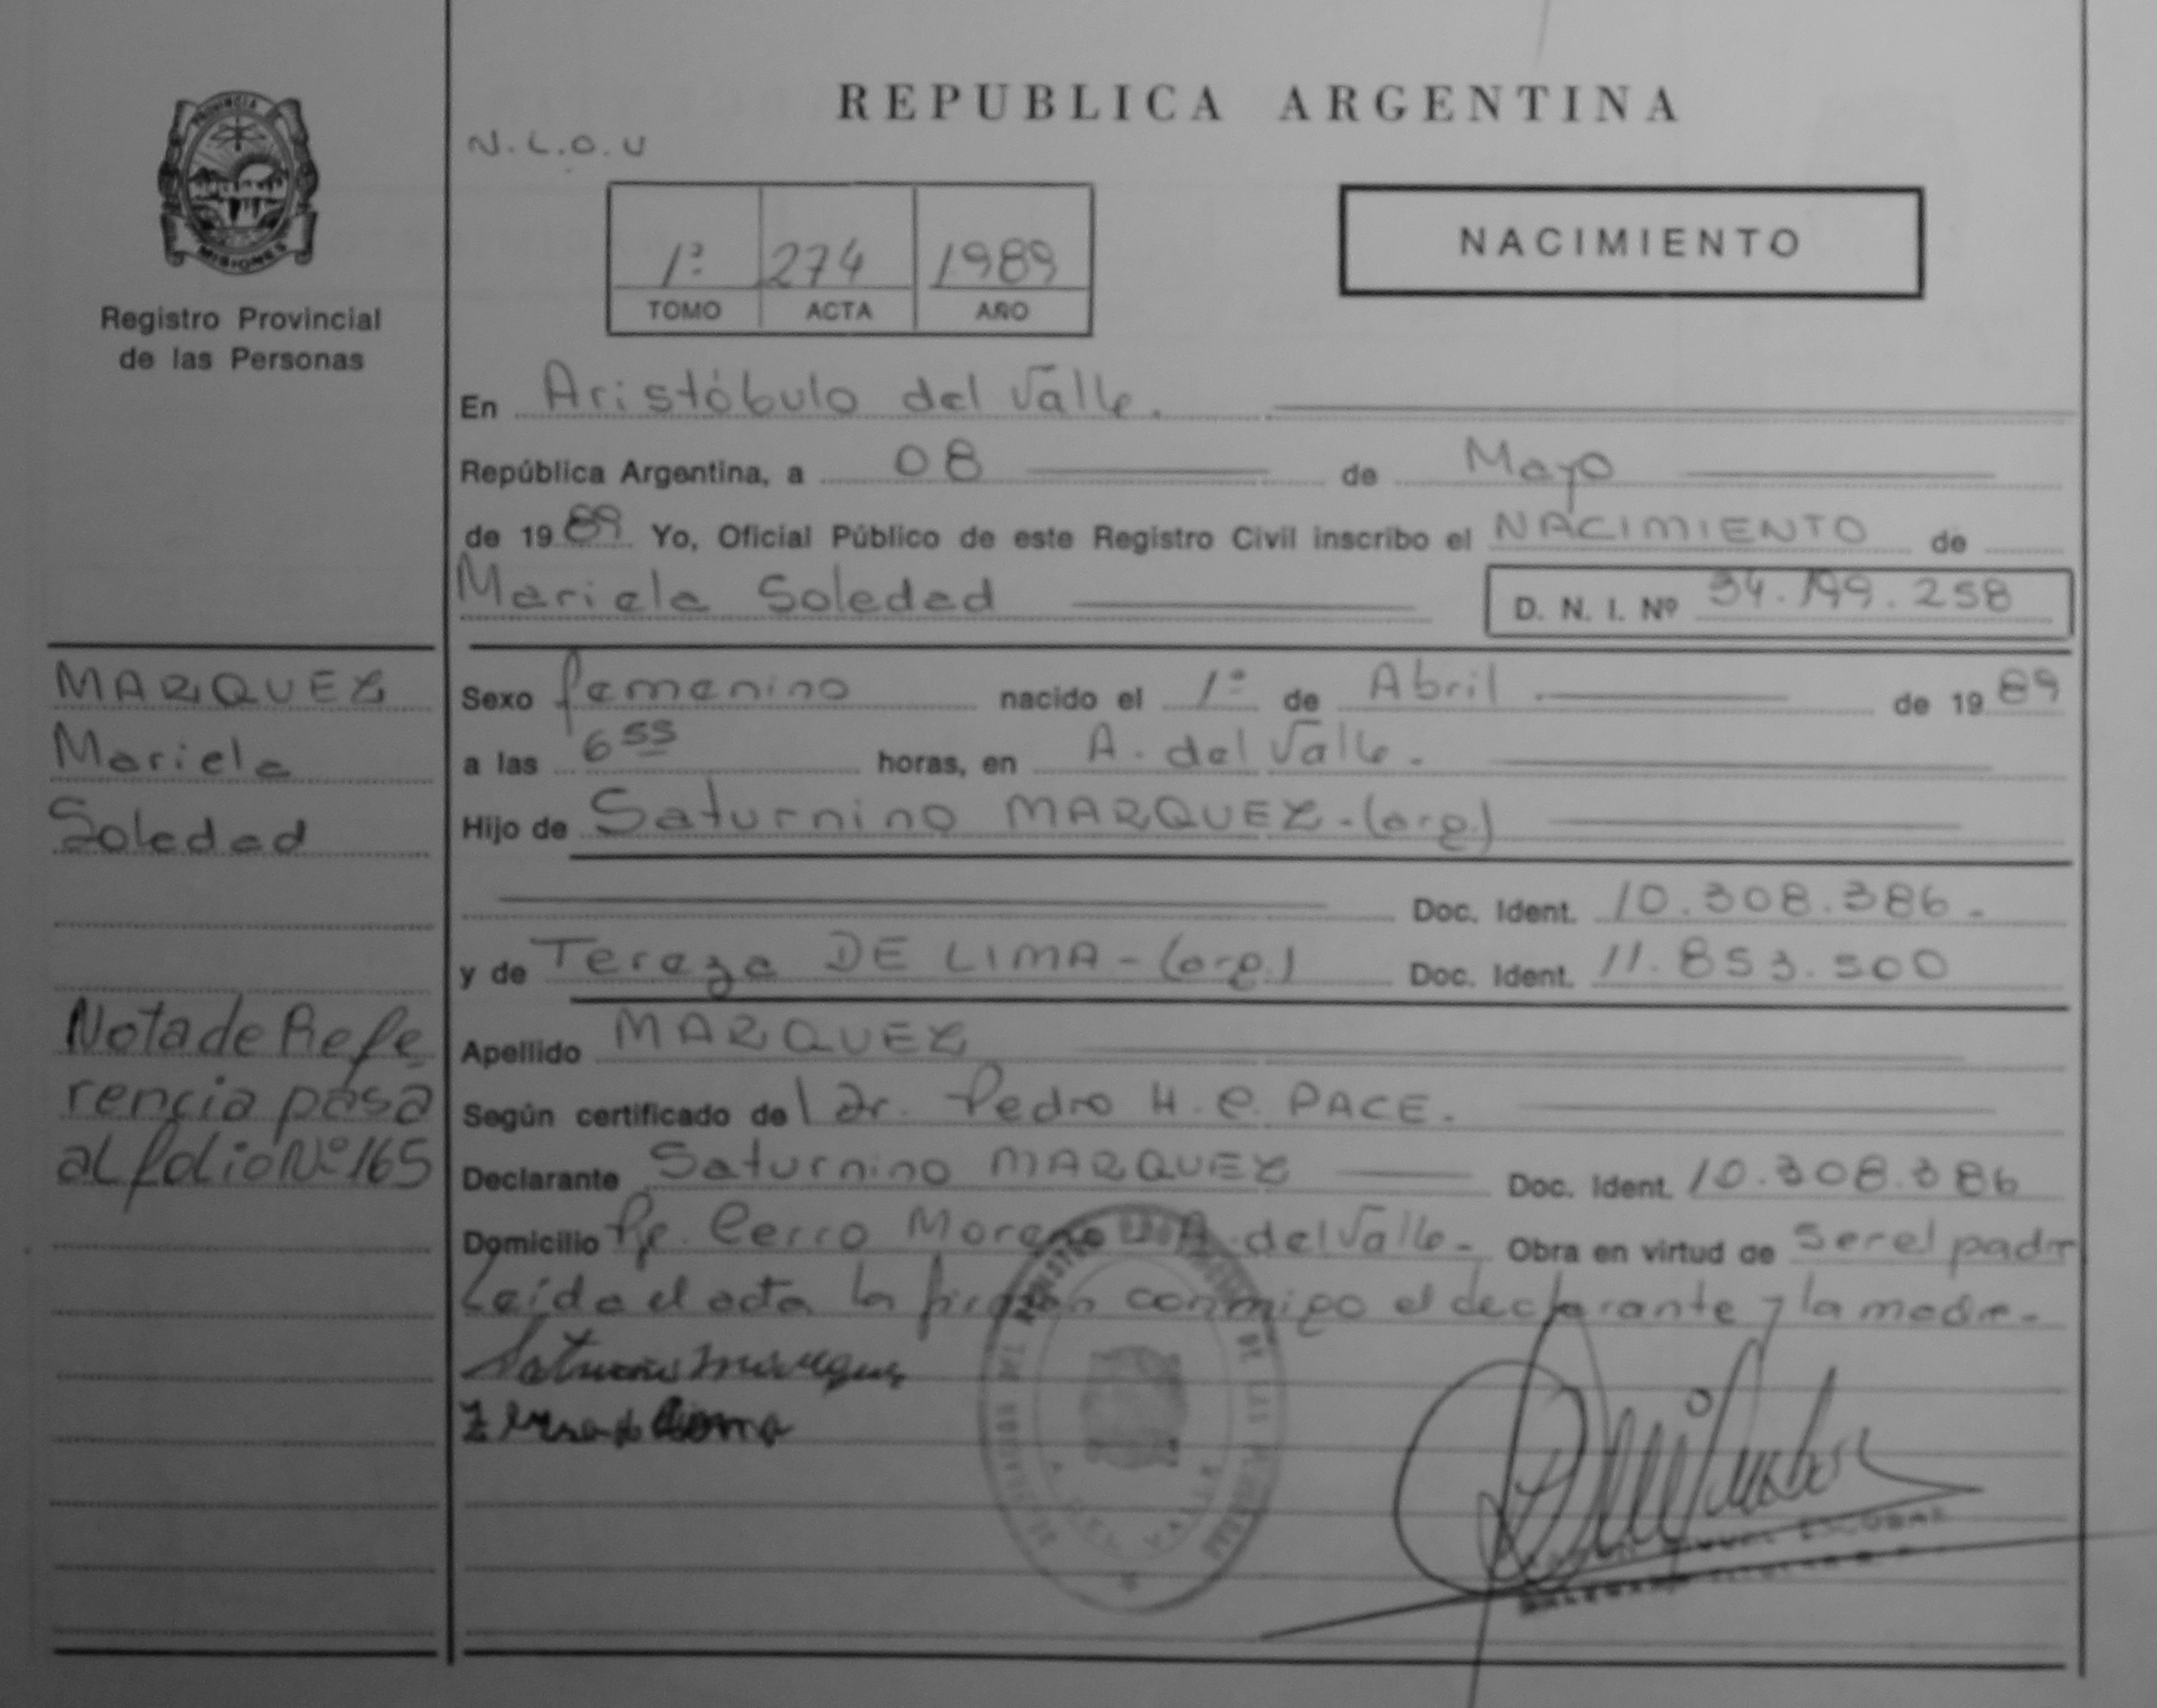 REPUBLICA ARGENTINA
N.L.O.U
PROVINCIA
MISIONES
Registro Provincial
de las Personas
1º 274 1989
TOMO ACTA AÑO
NACIMIENTO
En Aristóbulo del Valle.
República Argentina, a 08 de Mayo
de 1989 Yo, Oficial Público de este Registro Civil inscribo el NACIMIENTO de
Mariela Soledad D. N. I. Nº 34.199.258
MARQUEZ
Mariela
Soledad
Sexo femenino nacido el 1º de Abril de 1989
a las 6 55 horas, en A. del Valle.
Hijo de Saturnino MARQUEZ - (arg.)
Doc. Ident. 10.308.386 -
y de Tereza DE LIMA - (arg.) Doc. Ident. 11.853.500
Nota de Refe
rencia pasa
al folio Nº 165
Apellido MARQUEZ
Según certificado del Dr. Pedro H. C. PACE.
Declarante Saturnino MARQUEZ Doc. Ident. 10.308.386
Domicilio Pje. Cerro Moreno A. del Valle - Obra en virtud de Ser el padre
Leída el acta la firman conmigo el declarante y la madre -
DE LAS
A. DEL VALLE
ESCOBAR